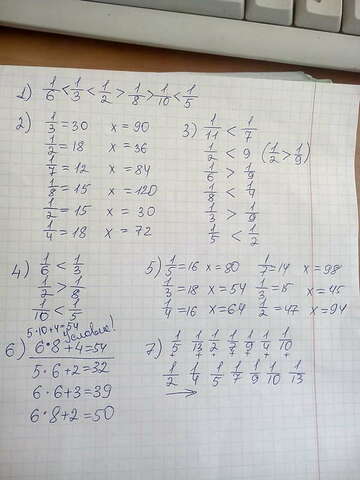 1) 1/6 < 1/3 < 1/2 > 1/8 > 1/10 < 1/5
2) 1/3 = 30 x = 90
1/2 = 18 x = 36
1/7 = 12 x = 84
1/8 = 15 x = 120
1/2 = 15 x = 30
1/4 = 18 x = 72
3) 1/11 < 1/7
1/2 < 9 (1/2 > 1/9)
1/6 > 1/9
1/8 < 1/4
1/3 > 1/9
1/5 < 1/2
4) 1/6 < 1/3
1/2 > 1/8
1/10 < 1/5
5) 1/5 = 16 x = 80 1/7 = 14 x = 98
1/3 = 18 x = 54 1/3 = 15 x = 45
1/4 = 16 x = 64 1/2 = 47 x = 94
5·10+4=54
условие!
6) 6·8+4=54
5·6+2=32
6·6+3=39
6·8+2=50
7) 1/5 1/13 1/2 1/7 1/9 1/4 1/10
1/2 1/4 1/5 1/7 1/9 1/10 1/13